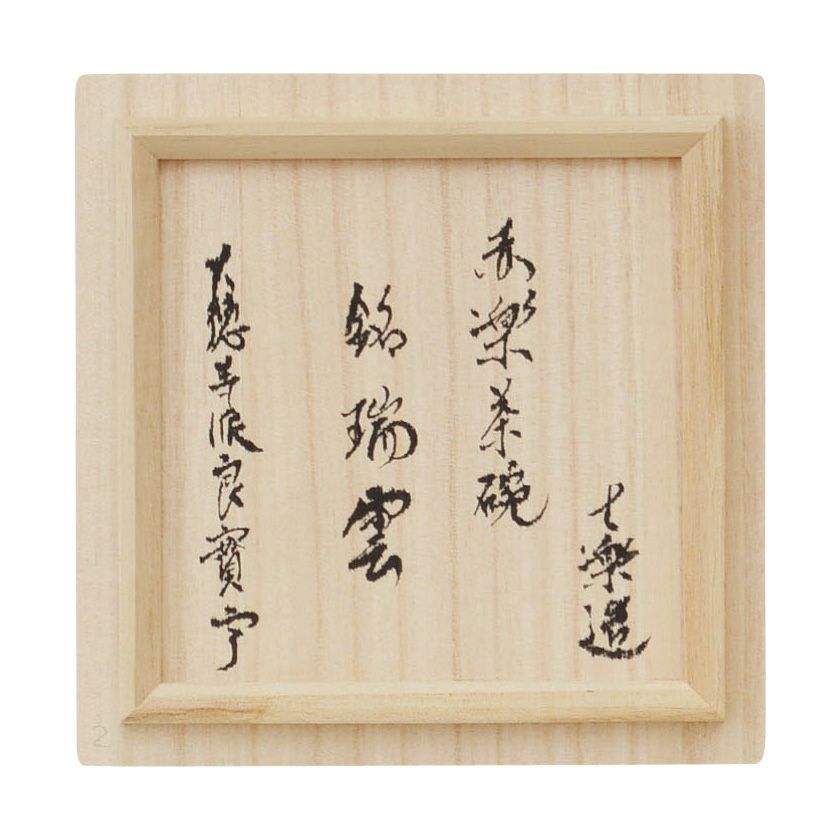 七楽造
赤楽茶碗
銘瑞雲
大徳寺派良寳
2